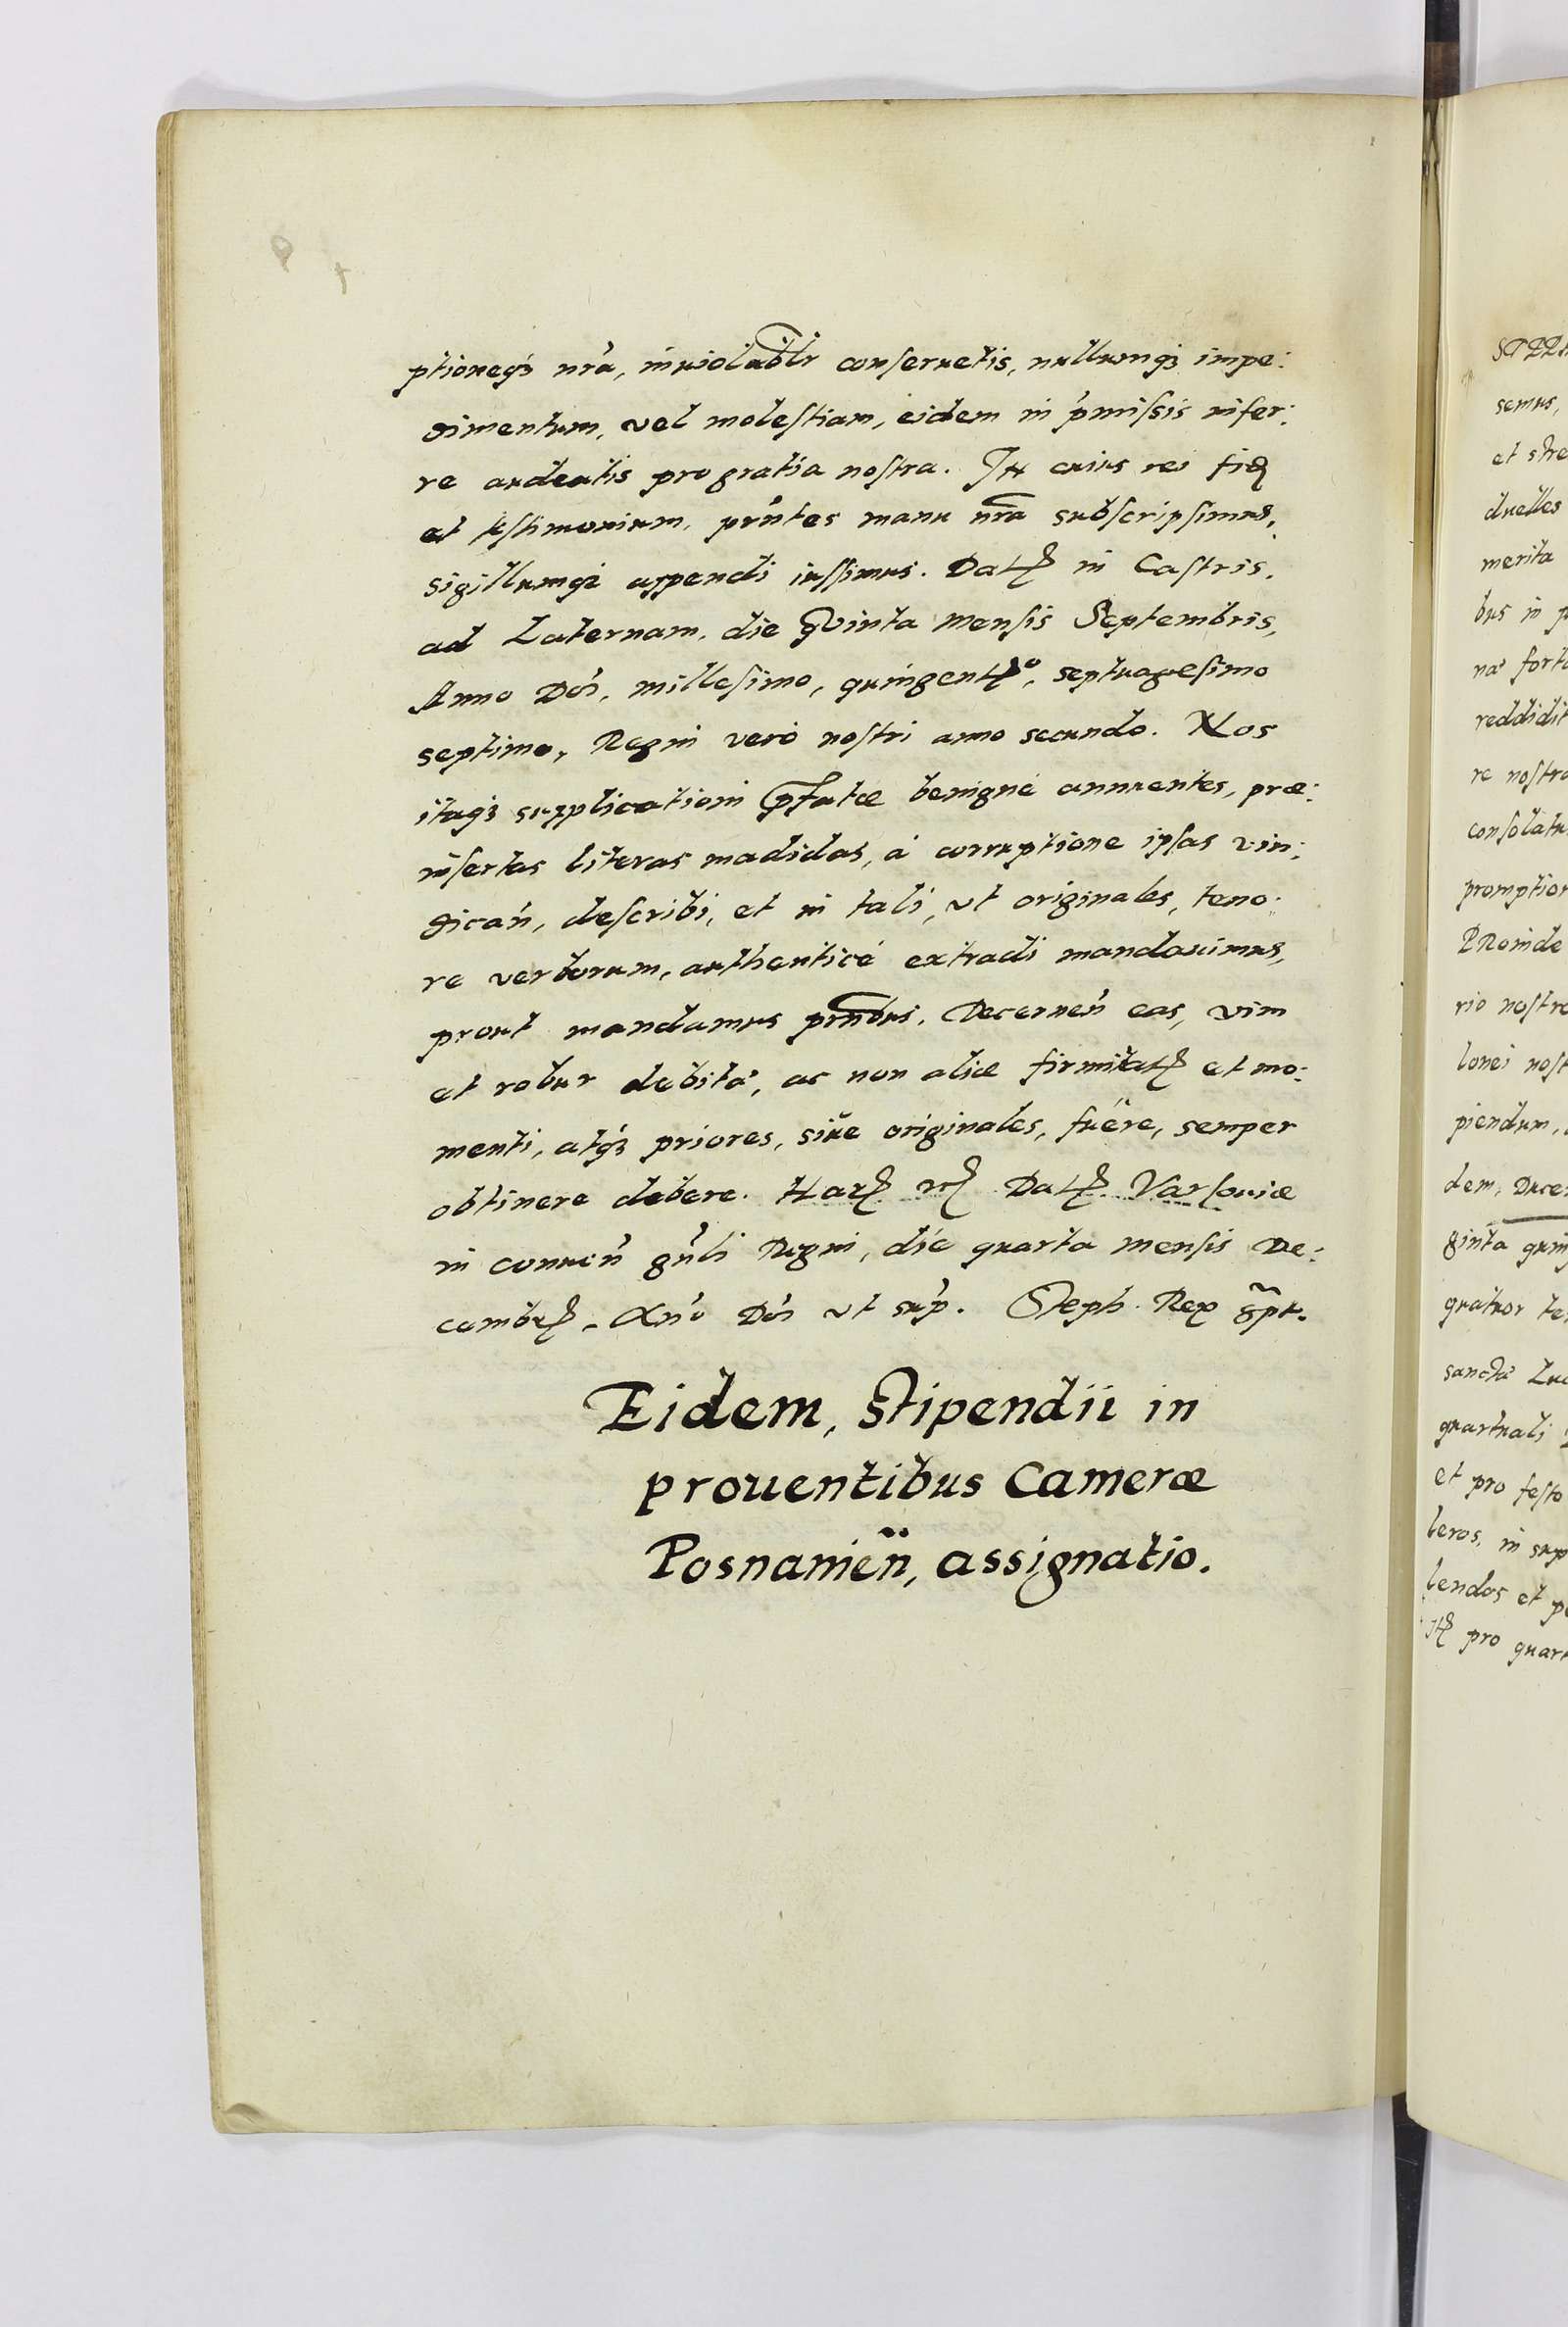 ptioneq3 nrã, inuiolablr conseruetis, nullumq3 impe:
dimentum, vel molestiam, eidem in p̃missis infer:
re audeatis pro gratia nostra. In cuius rei fid
et testimonium, prn̄tes manu nrã subscripsimus,
sigillumq3 appendi iussimus. Dat in Castris,
ad Laternam, die Quinta mensis Septembris,
Anno Dñi, millesimo, quingento, septuagesimo
septimo, Regni verò nostri anno secundo. Nos
itaq3 supplicationi p̃fatæ benignè annuentes, præ:
insertas literas madidas, à corruptione ipsas vin:
dicañ, describi, et in tali, vt originales, teno:
re verborum, authenticè extradi mandauimus,
prout mandamus prñbus. Decerneñ eas, vim
et robur debitã, ac non aliæ firmitat et mo:
menti, atq3 priores, siue originales, fuêre, semper
obtinere debere. Har Dat Varsouiæ
in conueñ gñli Regni, die quarta mensis De:
cembr, Añõ Dñi vt sup̃. Steph. Rex
Eidem, Stipendii in
prouentibus Cameræ
Posnanieñ, assignatio.
semus,
duelles
merita
bus in
reddidit
re nostra
promptior
PRoinde
rio nostro
piendum,
dem,
quatuor
quartuali
et pro festo
lendos et
pro quar